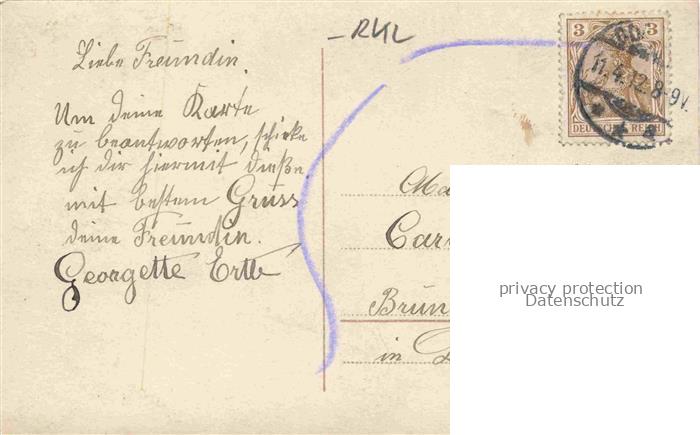 Liebe Freundin.
Um deine Karte
zu beantworten, schicke
ich dir hiermit dieße
mit bestem Gruss
deine Freundin.
Georgette Ertb
- RKL
3 3
DEUTSCHES REICH
11.4.12.8-9V.
Ma
Car
Brun
in
privacy protection
Datenschutz